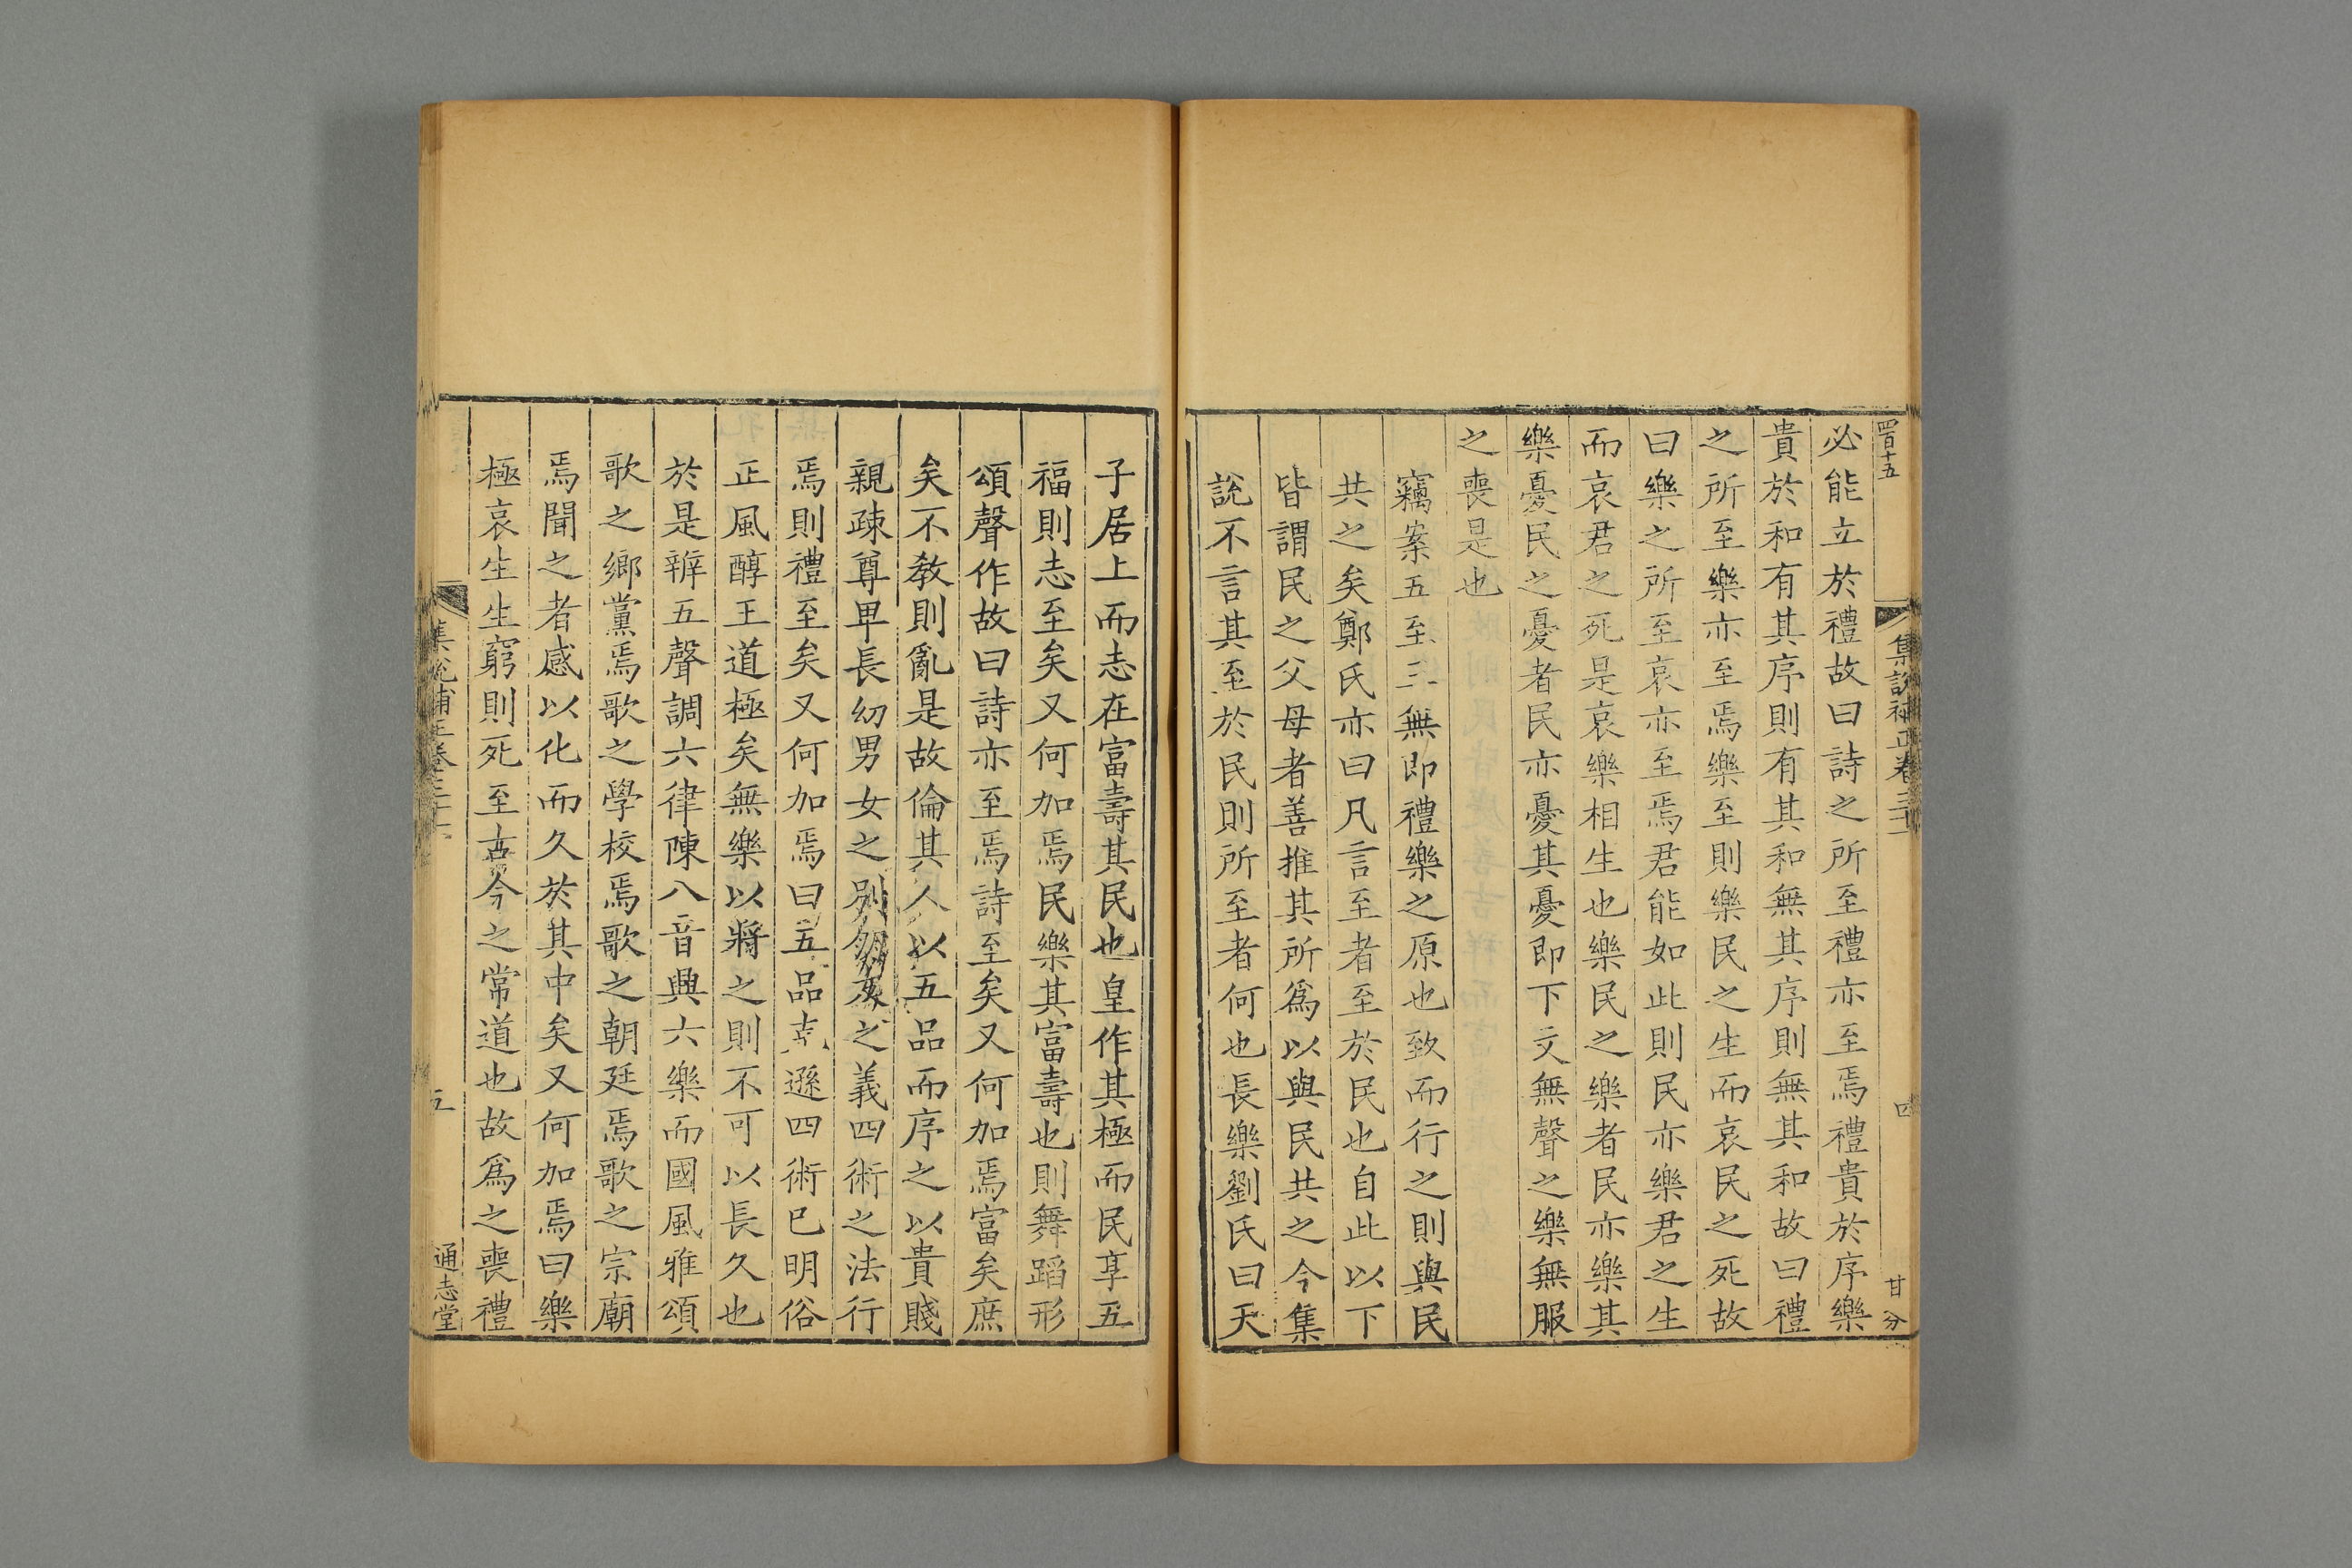 四百十五
集說補正卷三十
四
甘分
必能立於禮故曰詩之所至禮亦至焉禮貴於序樂
貴於和有其序則有其和無其序則無其和故曰禮
之所至樂亦至焉樂至則樂民之生而哀民之死故
曰樂之所至哀亦至焉君能如此則民亦樂君之生
而哀君之死是哀樂相生也樂民之樂者民亦樂其
樂憂民之憂者民亦憂其憂即下文無聲之樂無服
之喪是也
竊案五至三無即禮樂之原也致而行之則與民
共之矣鄭氏亦曰凡言至者至於民也自此以下
皆謂民之父母者善推其所爲以與民共之今集
說不言其至於民則所至者何也長樂劉氏曰天
子居上而志在富壽其民也皇作其極而民享五
福則志至矣又何加焉民樂其富壽也則舞蹈形
頌聲作故曰詩亦至焉詩至矣又何加焉富矣庶
矣不教則亂是故倫其人以五品而序之以貴賤
親疎尊卑長幼男女之別朋友之義四術之法行
焉則禮至矣又何加焉曰五品克遜四術已明俗
正風醇王道極矣無樂以將之則不可以長久也
於是辨五聲調六律陳八音興六樂而國風雅頌
歌之鄉黨焉歌之學校焉歌之朝廷焉歌之宗廟
焉聞之者感以化而久於其中矣又何加焉曰樂
極哀生生窮則死至古今之常道也故爲之喪禮
集說補正卷三十
五
通志堂